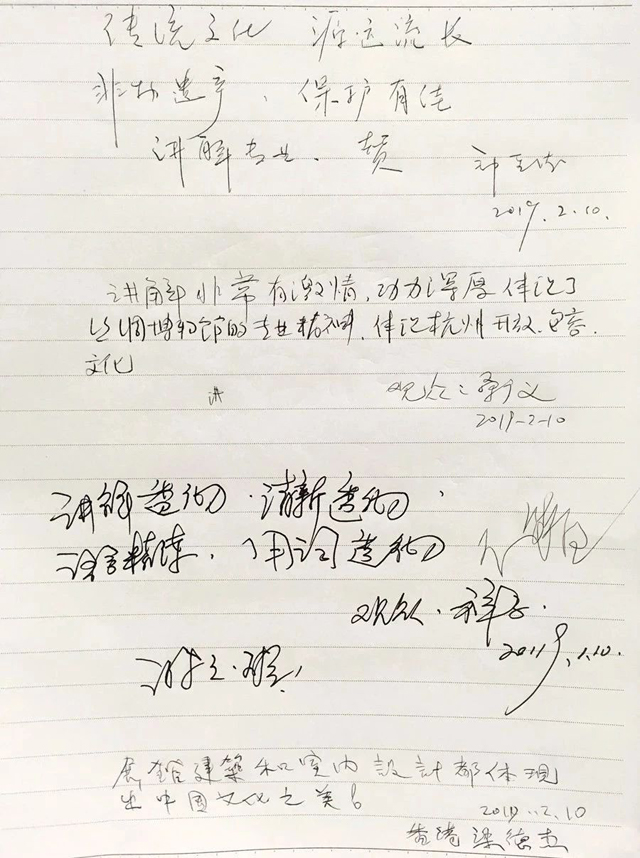 传统文化 源远流长
非物遗产、保护有佳
讲解专业、赞
2019.2.10.
讲解非常有激情,功力深厚 体现了
丝绸博物馆的专业精神,体现杭州开放.包容.
文化
讲
观众:
2019-2-10
讲解透彻.清新透彻.
语言精炼.用词透彻
观众.
2019.2.10.
展館建築和室內設計都体現
出中国文化之美!
2019.2.10
香港梁德杰